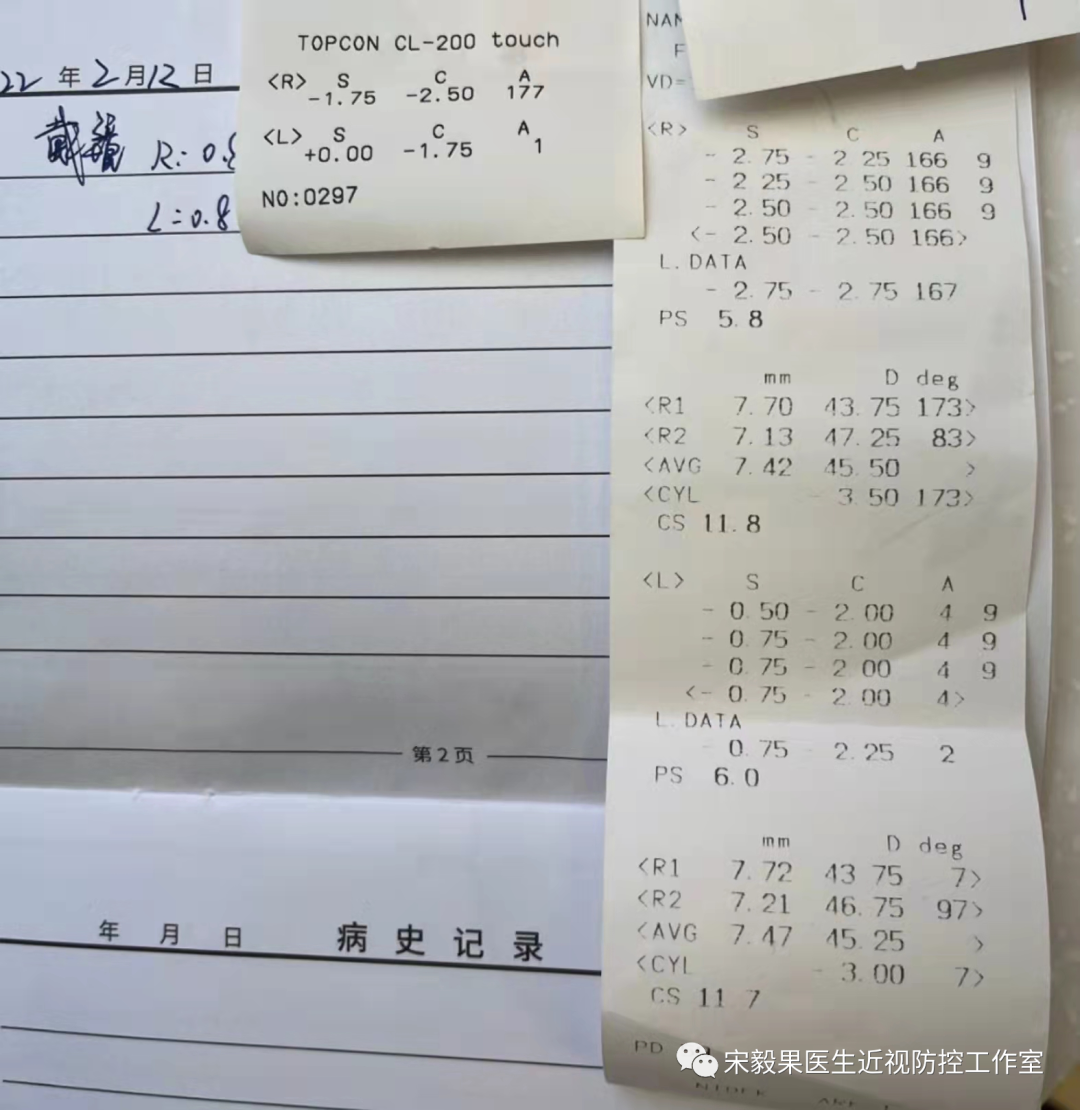 22 年 2 月 12 日
戴镜 R: 0.8
L=0.8
TOPCON CL-200 touch
<R> S C A
-1.75 -2.50 177
<L> S C A
+0.00 -1.75 1
NO:0297
VD=
<R> S C A
- 2.75 - 2 25 166 9
- 2 25 - 2 50 166 9
- 2.50 - 2.50 166 9
<- 2.50 - 2.50 166>
L.DATA
- 2.75 - 2.75 167
PS 5.8
mm D deg
<R1 7.70 43.75 173>
<R2 7.13 47.25 83>
<AVG 7.42 45.50 >
<CYL - 3.50 173>
CS 11.8
<L> S C A
- 0.50 - 2.00 4 9
- 0.75 - 2.00 4 9
- 0.75 - 2 00 4 9
<- 0.75 - 2.00 4>
L.DATA
- 0.75 - 2.25 2
PS 6.0
mm D deg
<R1 7.72 43 75 7>
<R2 7.21 46.75 97>
<AVG 7.47 45.25 >
<CYL - 3.00 7>
CS 11 7
PD
第 2 页
年 月 日 病 史 记 录
宋毅果医生近视防控工作室